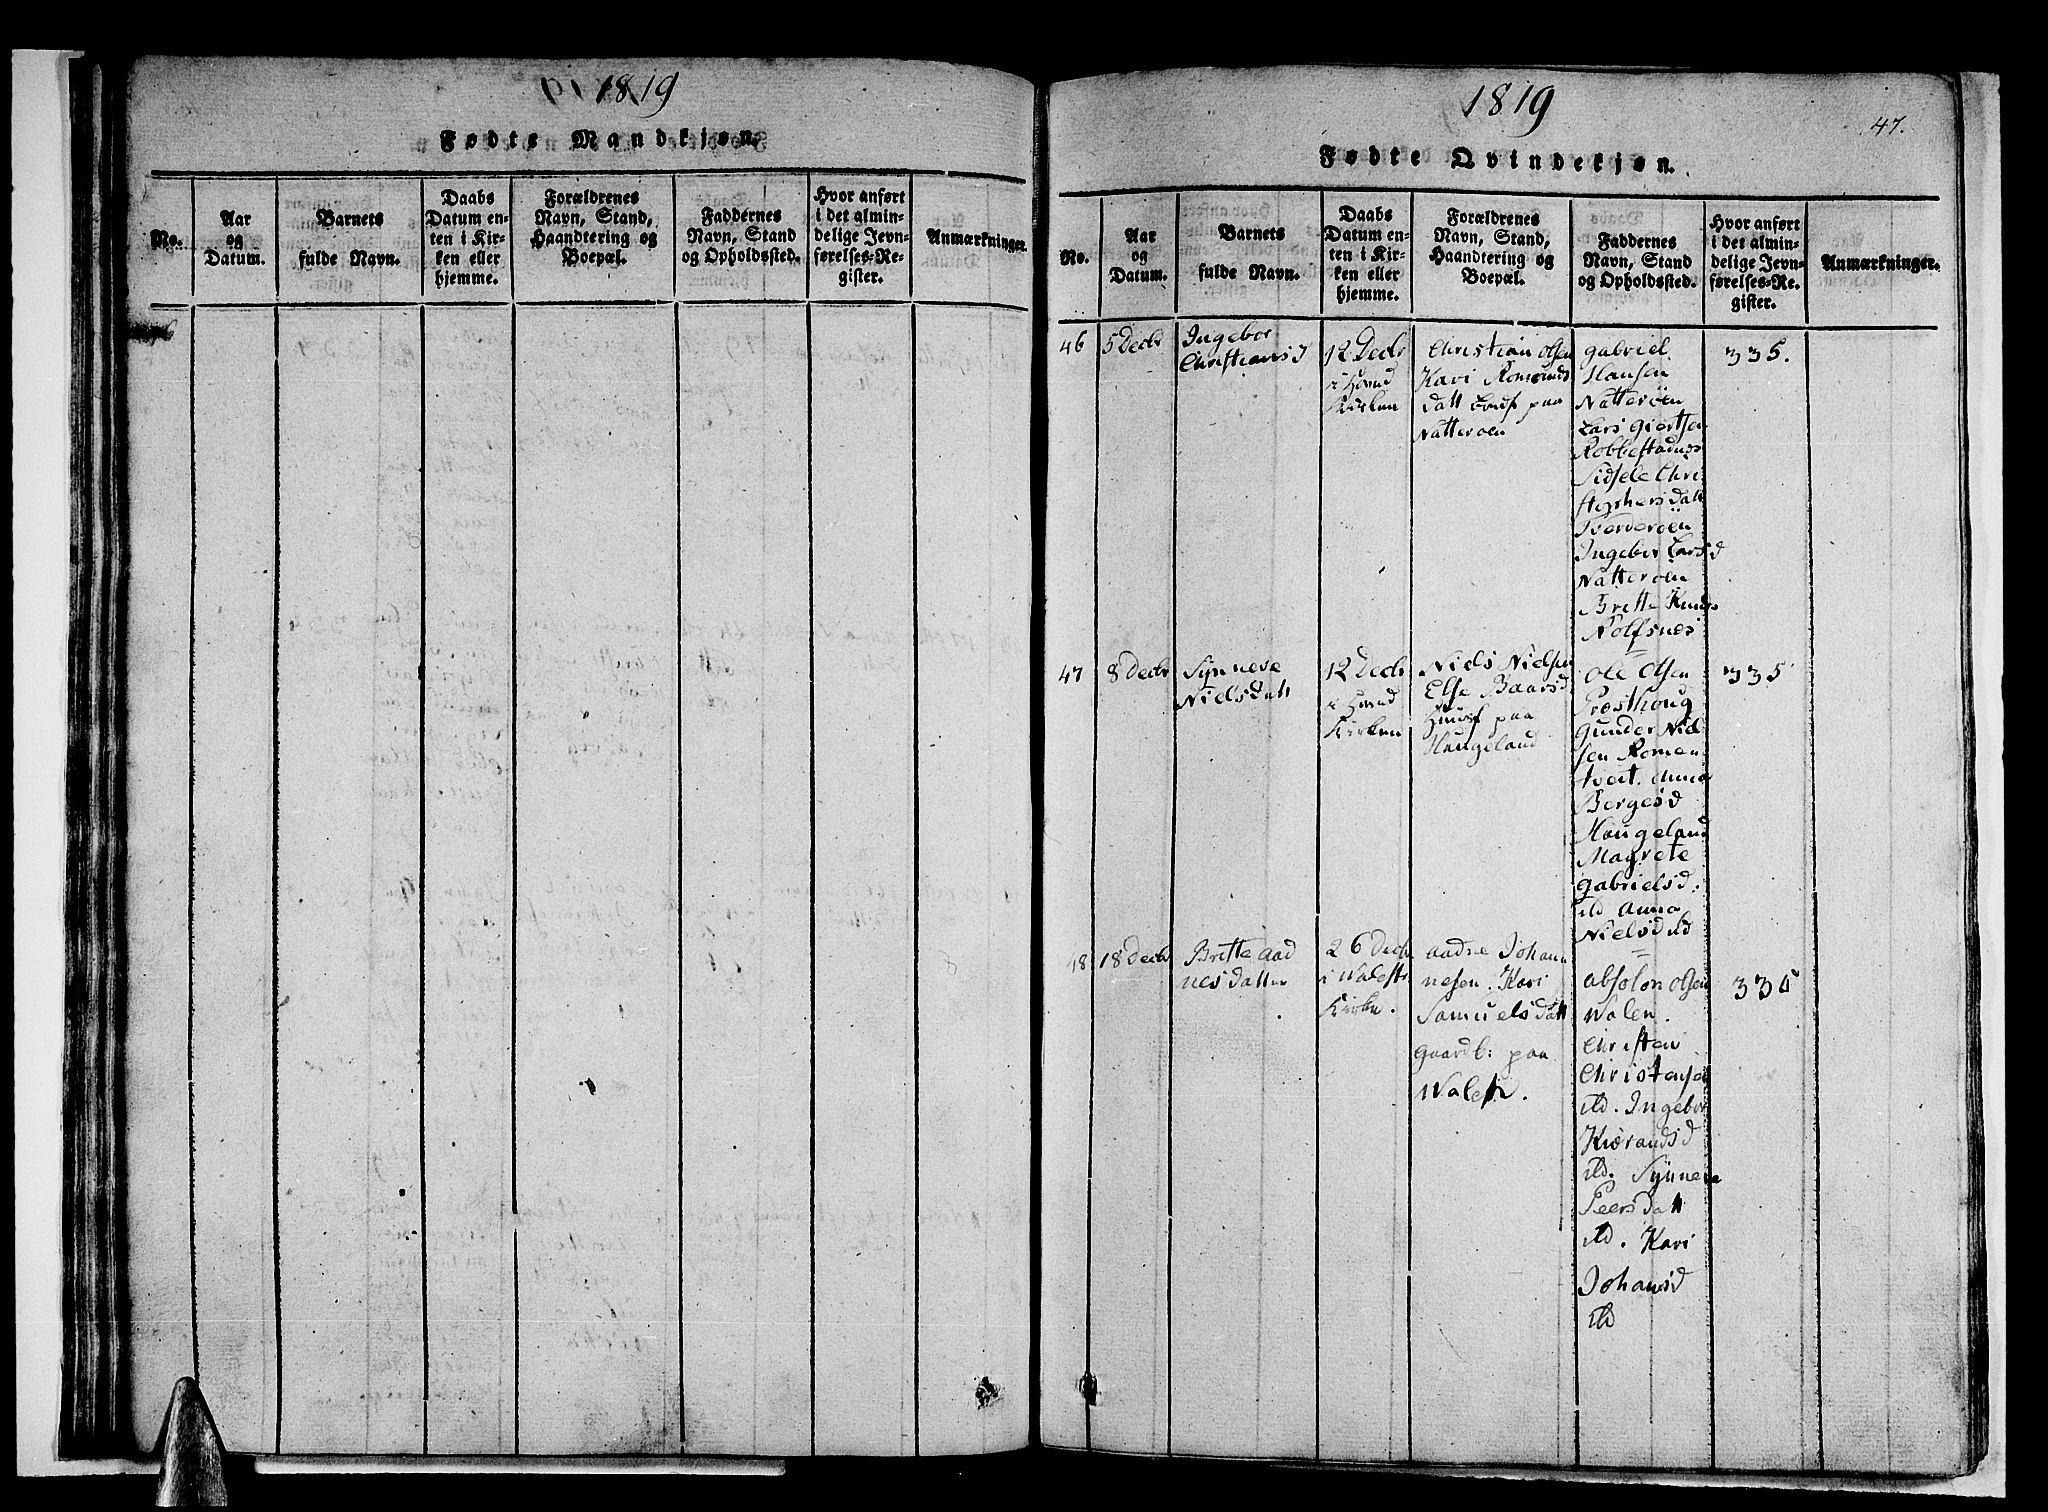 1819
Fødte Mandkjøn.
No.
Aar
og
Datum.
Barnets
fulde Navn.
Daabs
Datum en-
ten i Kir-
ken eller
hjemme.
Forældrenes
Navn, Stand,
Haandtering og
Boepæl.
Faddernes
Navn, Stand
og Opholdssted.
Hvor anført
i det almin-
delige Jevn-
førelses-Re-
gister.
Anmærkninger.
1819
47.
Fødte Qvindekjøn.
No.
Aar
og
Datum.
Barnets
fulde Navn.
Daabs
Datum en-
ten i Kir-
ken eller
hjemme.
Forældrenes
Navn, Stand,
Haandtering og
Boepæl.
Faddernes
Navn, Stand
og Opholdssted.
Hvor anført
i det almin-
delige Jevn-
førelses-Re-
gister.
Anmærkninger.
46
5 Decbr
Ingebor
Christiansd
12 Decbr
i Hoved
Kirken
Christian Olsen
Kari Romunds
datt paa
Natterøen
Gabriel
Hansen
Natterøen
Lars Giertsen
Robbestadnes
Sidsele Chri
stophersdatt
Tverderøen
Ingebor Larsd
Natterøen
Britte Knuds
Rolfsnes
335.
47
8 Decbr
Synneve
Nielsdatt
12 Decbr
i Hoved
Kirken
Niels Nielsen
Else Baarsd
Huusf paa
Haugeland
Ole Olsen
Præsthoug
Gunder Niel
sen Romen
tveit. Anna
Bergesd
Haugeland
Magrete
Gabrielsd.
ibd Anna
Nielsd ibd
335
48
18 Decbr
Britte Aad
nesdatter
26 Decbr
i Walestr
Kirke.
Aadne Johan
nesen. Kari
Samuelsdatt
Gaardb: paa
Walen.
Absolon Olsen
Walen.
Christen
Christensen
ibd. Ingebor
Kiørandsd
ibd. Synneve
Peersdatt
ibd. Kari
Johansd
ibd
335